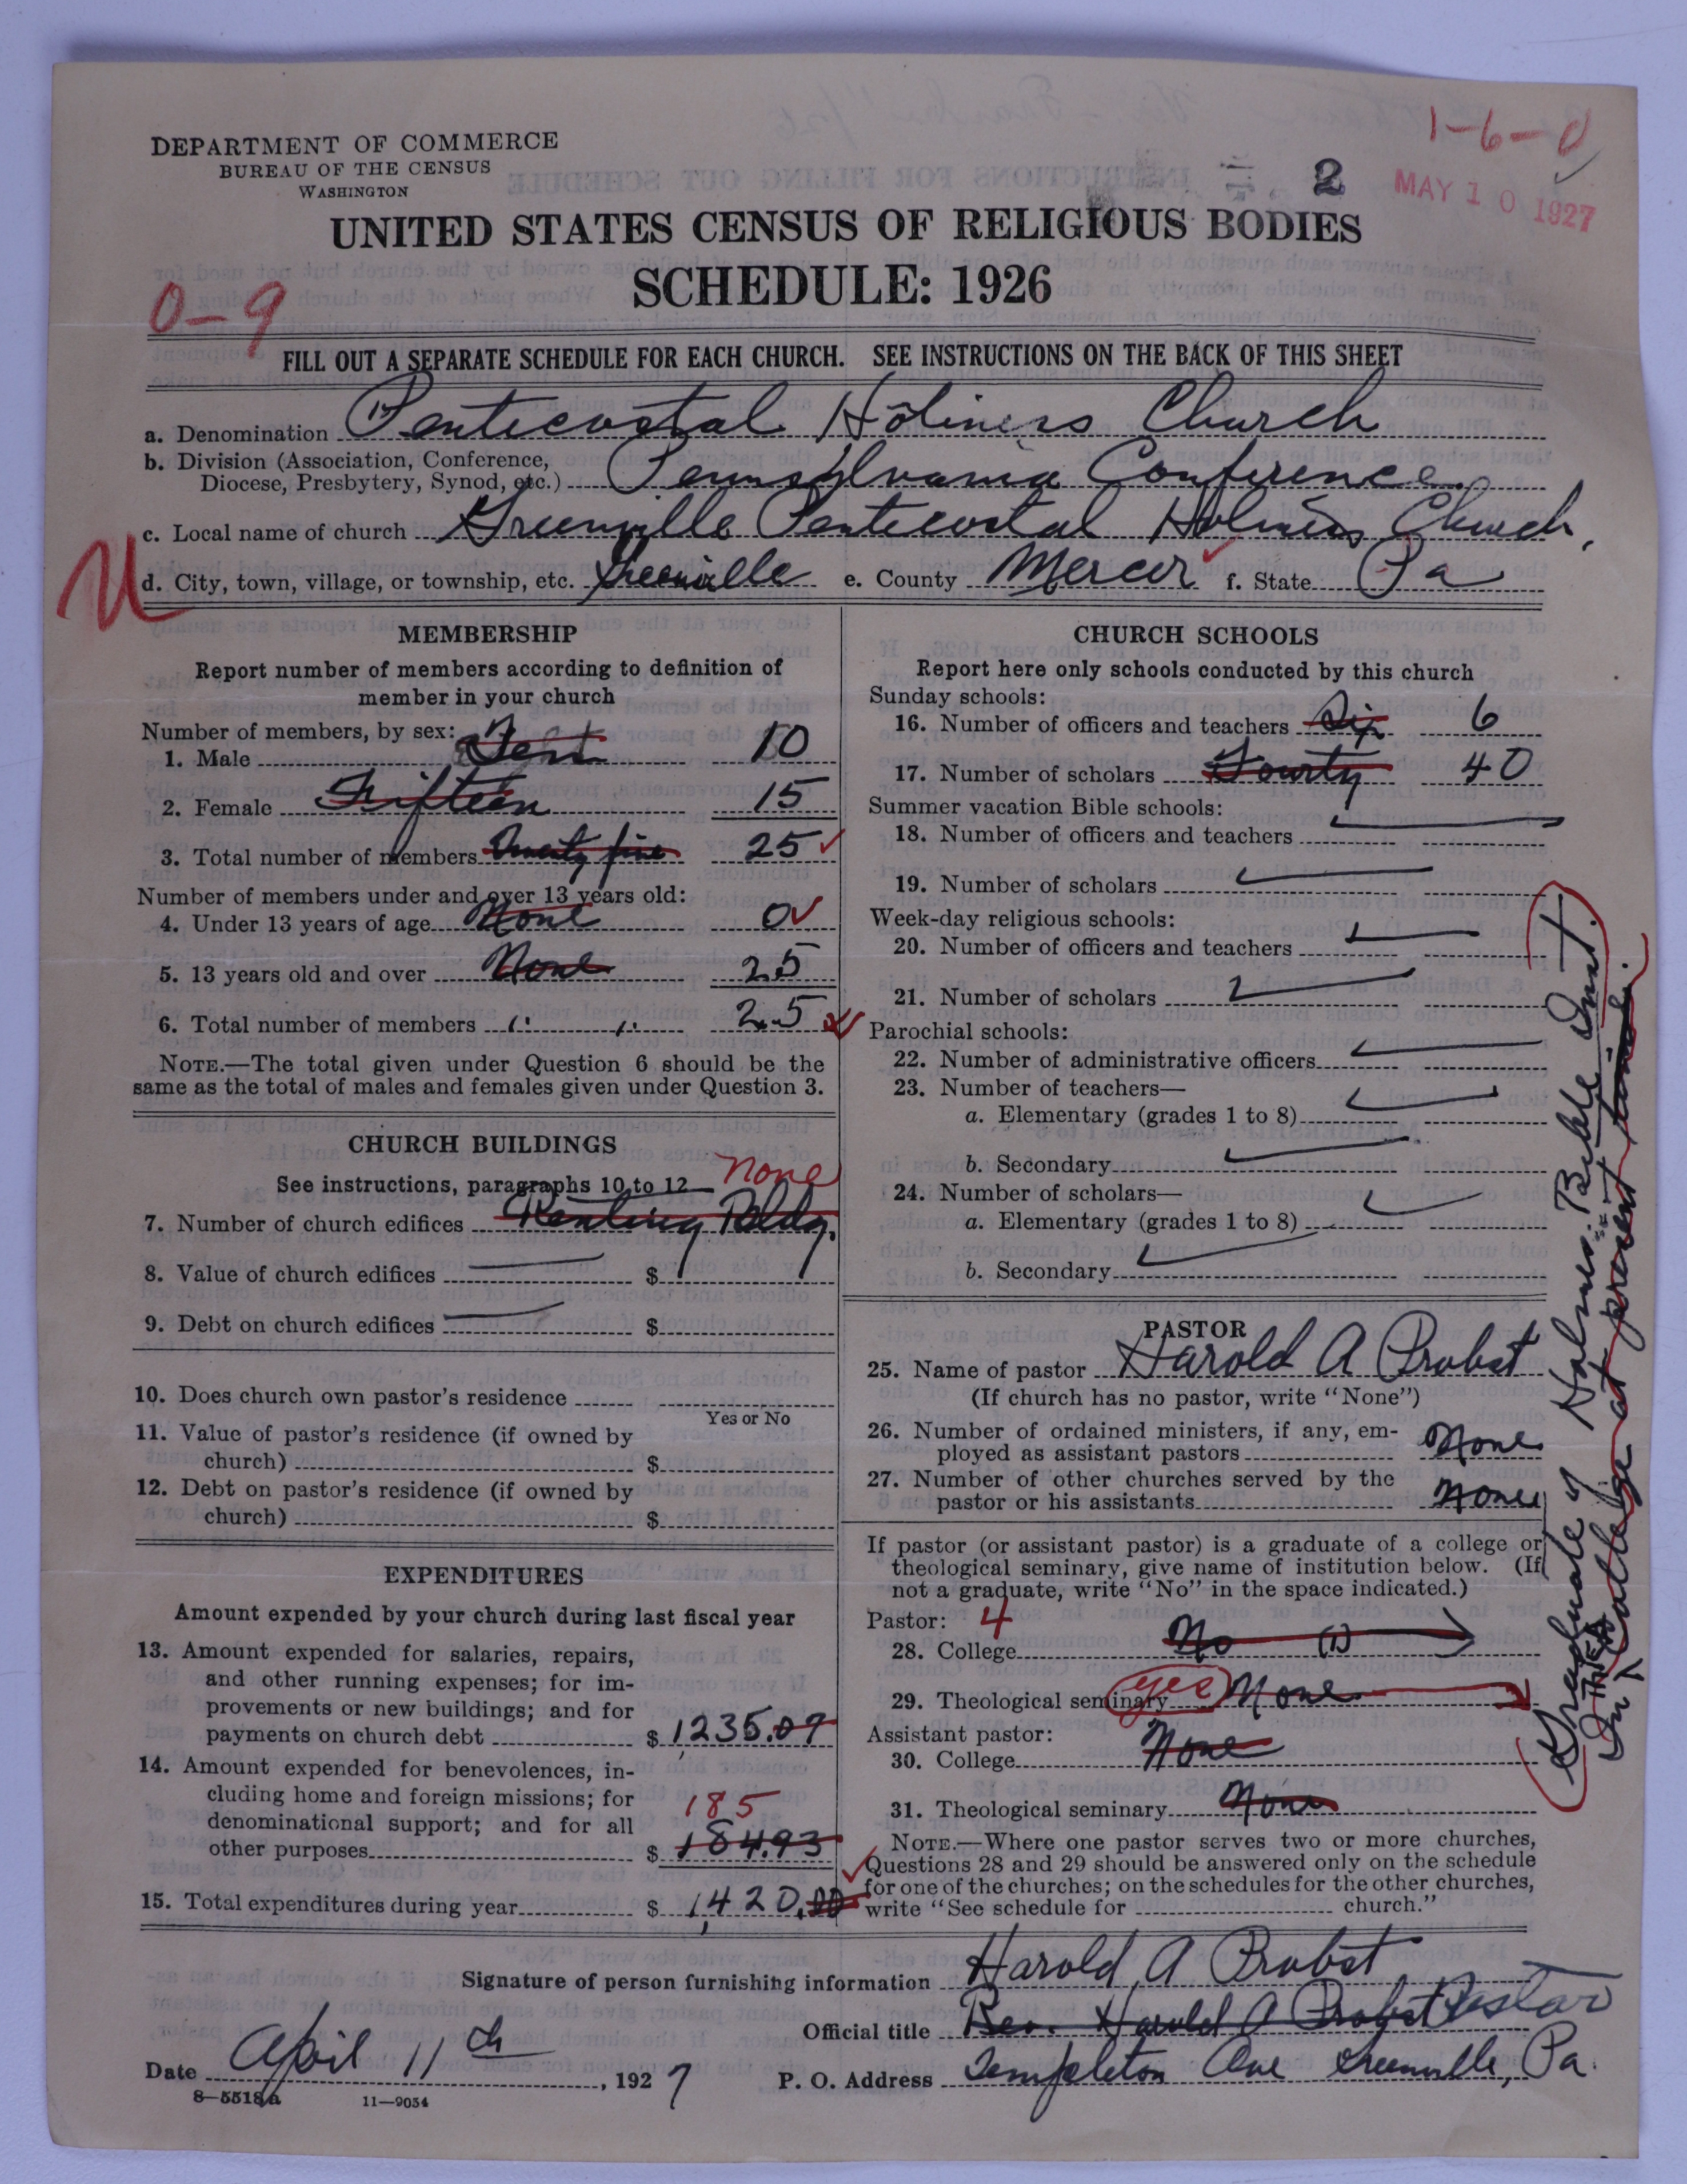 1-6-0
DEPARTMENT OF COMMERCE
BUREAU OF THE CENSUS
WASHINGTON
2
MAY 10 1927
UNITED STATES CENSUS OF RELIGIOUS BODIES
SCHEDULE: 1926
0-9
FILL OUT A SEPARATE SCHEDULE FOR EACH CHURCH. SEE INSTRUCTIONS ON THE BACK OF THIS SHEET
a. Denomination Pentecostal Holiness Church
b. Division (Association, Conference,
Diocese, Presbytery, Synod, etc.) Pennsylvania Conference.
c. Local name of church Greenville Pentecostal Holiness Church,
d. City, town, village, or township, etc. Greenville e. County Mercer f. State Pa
MEMBERSHIP
Report number of members according to definition of
member in your church
Number of members, by sex:
1. Male Ten 10
2. Female Fifteen 15
3. Total number of members Twenty five 25
Number of members under and over 13 years old:
4. Under 13 years of age None 0
5. 13 years old and over None 25
6. Total number of members 25
NOTE.—The total given under Question 6 should be the
same as the total of males and females given under Question 3.
CHURCH BUILDINGS
See instructions, paragraphs 10 to 12 none
7. Number of church edifices Renting Bldg.
8. Value of church edifices $
9. Debt on church edifices $
10. Does church own pastor's residence
Yes or No
11. Value of pastor's residence (if owned by
church) $
12. Debt on pastor's residence (if owned by
church) $
EXPENDITURES
Amount expended by your church during last fiscal year
13. Amount expended for salaries, repairs,
and other running expenses; for im-
provements or new buildings; and for
payments on church debt $ 1,235.07
14. Amount expended for benevolences, in-
cluding home and foreign missions; for
denominational support; and for all 185
other purposes $ 184.93
15. Total expenditures during year $ 1,420.00
CHURCH SCHOOLS
Report here only schools conducted by this church
Sunday schools:
16. Number of officers and teachers Six 6
17. Number of scholars Fourty 40
Summer vacation Bible schools:
18. Number of officers and teachers
19. Number of scholars
Week-day religious schools:
20. Number of officers and teachers
21. Number of scholars
Parochial schools:
22. Number of administrative officers
23. Number of teachers—
a. Elementary (grades 1 to 8)
b. Secondary
24. Number of scholars—
a. Elementary (grades 1 to 8)
b. Secondary
PASTOR
25. Name of pastor Harold A Probst
(If church has no pastor, write "None")
26. Number of ordained ministers, if any, em-
ployed as assistant pastors None
27. Number of other churches served by the
pastor or his assistants None
If pastor (or assistant pastor) is a graduate of a college or
theological seminary, give name of institution below. (If
not a graduate, write "No" in the space indicated.)
Pastor: 4
28. College No (1)
29. Theological seminary yes None
Assistant pastor:
30. College None
31. Theological seminary None
NOTE.—Where one pastor serves two or more churches,
Questions 28 and 29 should be answered only on the schedule
for one of the churches; on the schedules for the other churches,
write "See schedule for church."
Graduate of Holmes Bible Inst.
In Thiel College at present time.
Signature of person furnishing information Harold A Probst
Official title Rev. Harold A Probst Pastor
Date April 11th, 1927 P. O. Address Templeton Ave Greenville, Pa.
8—5518a 11—9054